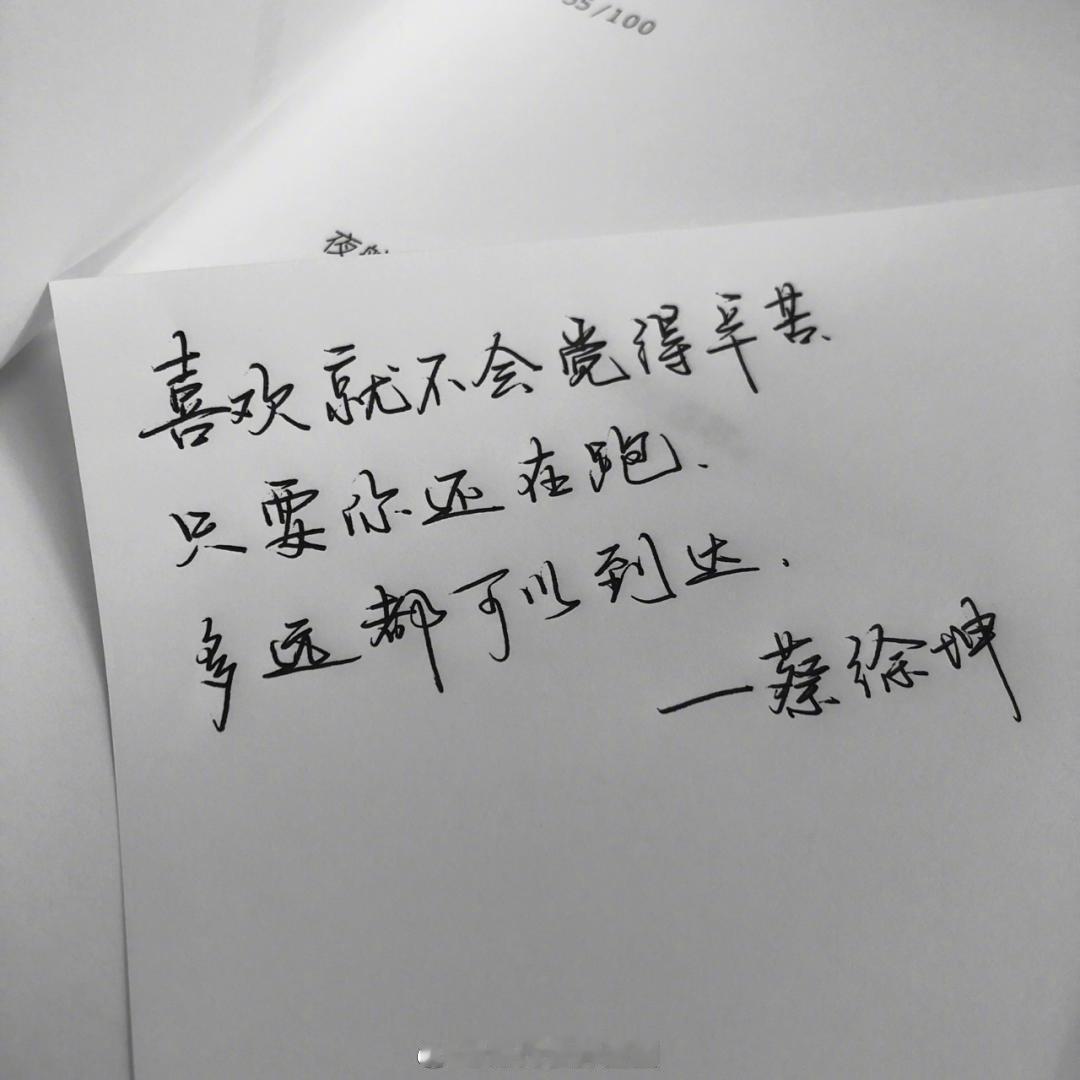 35/100
喜欢就不会觉得辛苦、
只要你还在跑、
多远都可以到达.
—蔡徐坤